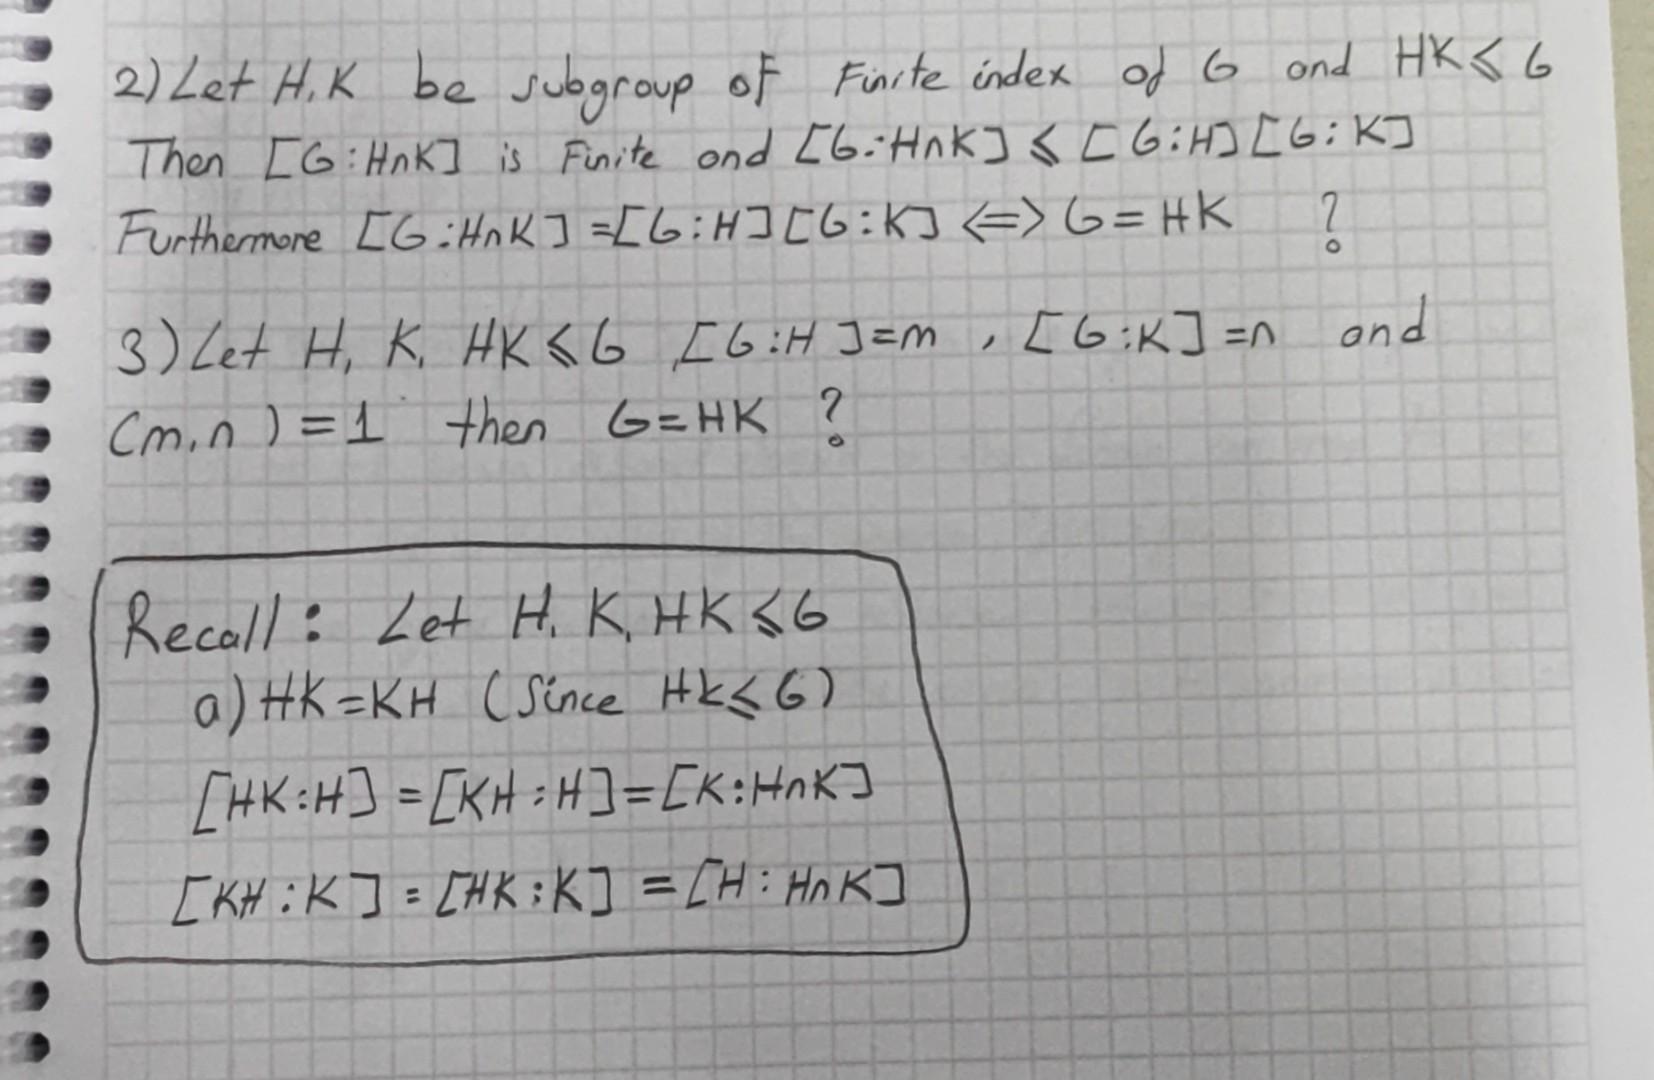 2) Let H, K be subgroup of Finite index of G and HK ≤ G
Then [G:H∩K] is Finite and [G:H∩K] ≤ [G:H][G:K]
Furthermore [G:H∩K] = [G:H][G:K] <=> G = HK ?
3) Let H, K, HK ≤ G, [G:H] = m, [G:K] = n and
(m,n) = 1 then G = HK ?
Recall: Let H, K, HK ≤ G
a) HK = KH (Since HK ≤ G)
[HK:H] = [KH:H] = [K:H∩K]
[KH:K] = [HK:K] = [H:H∩K]